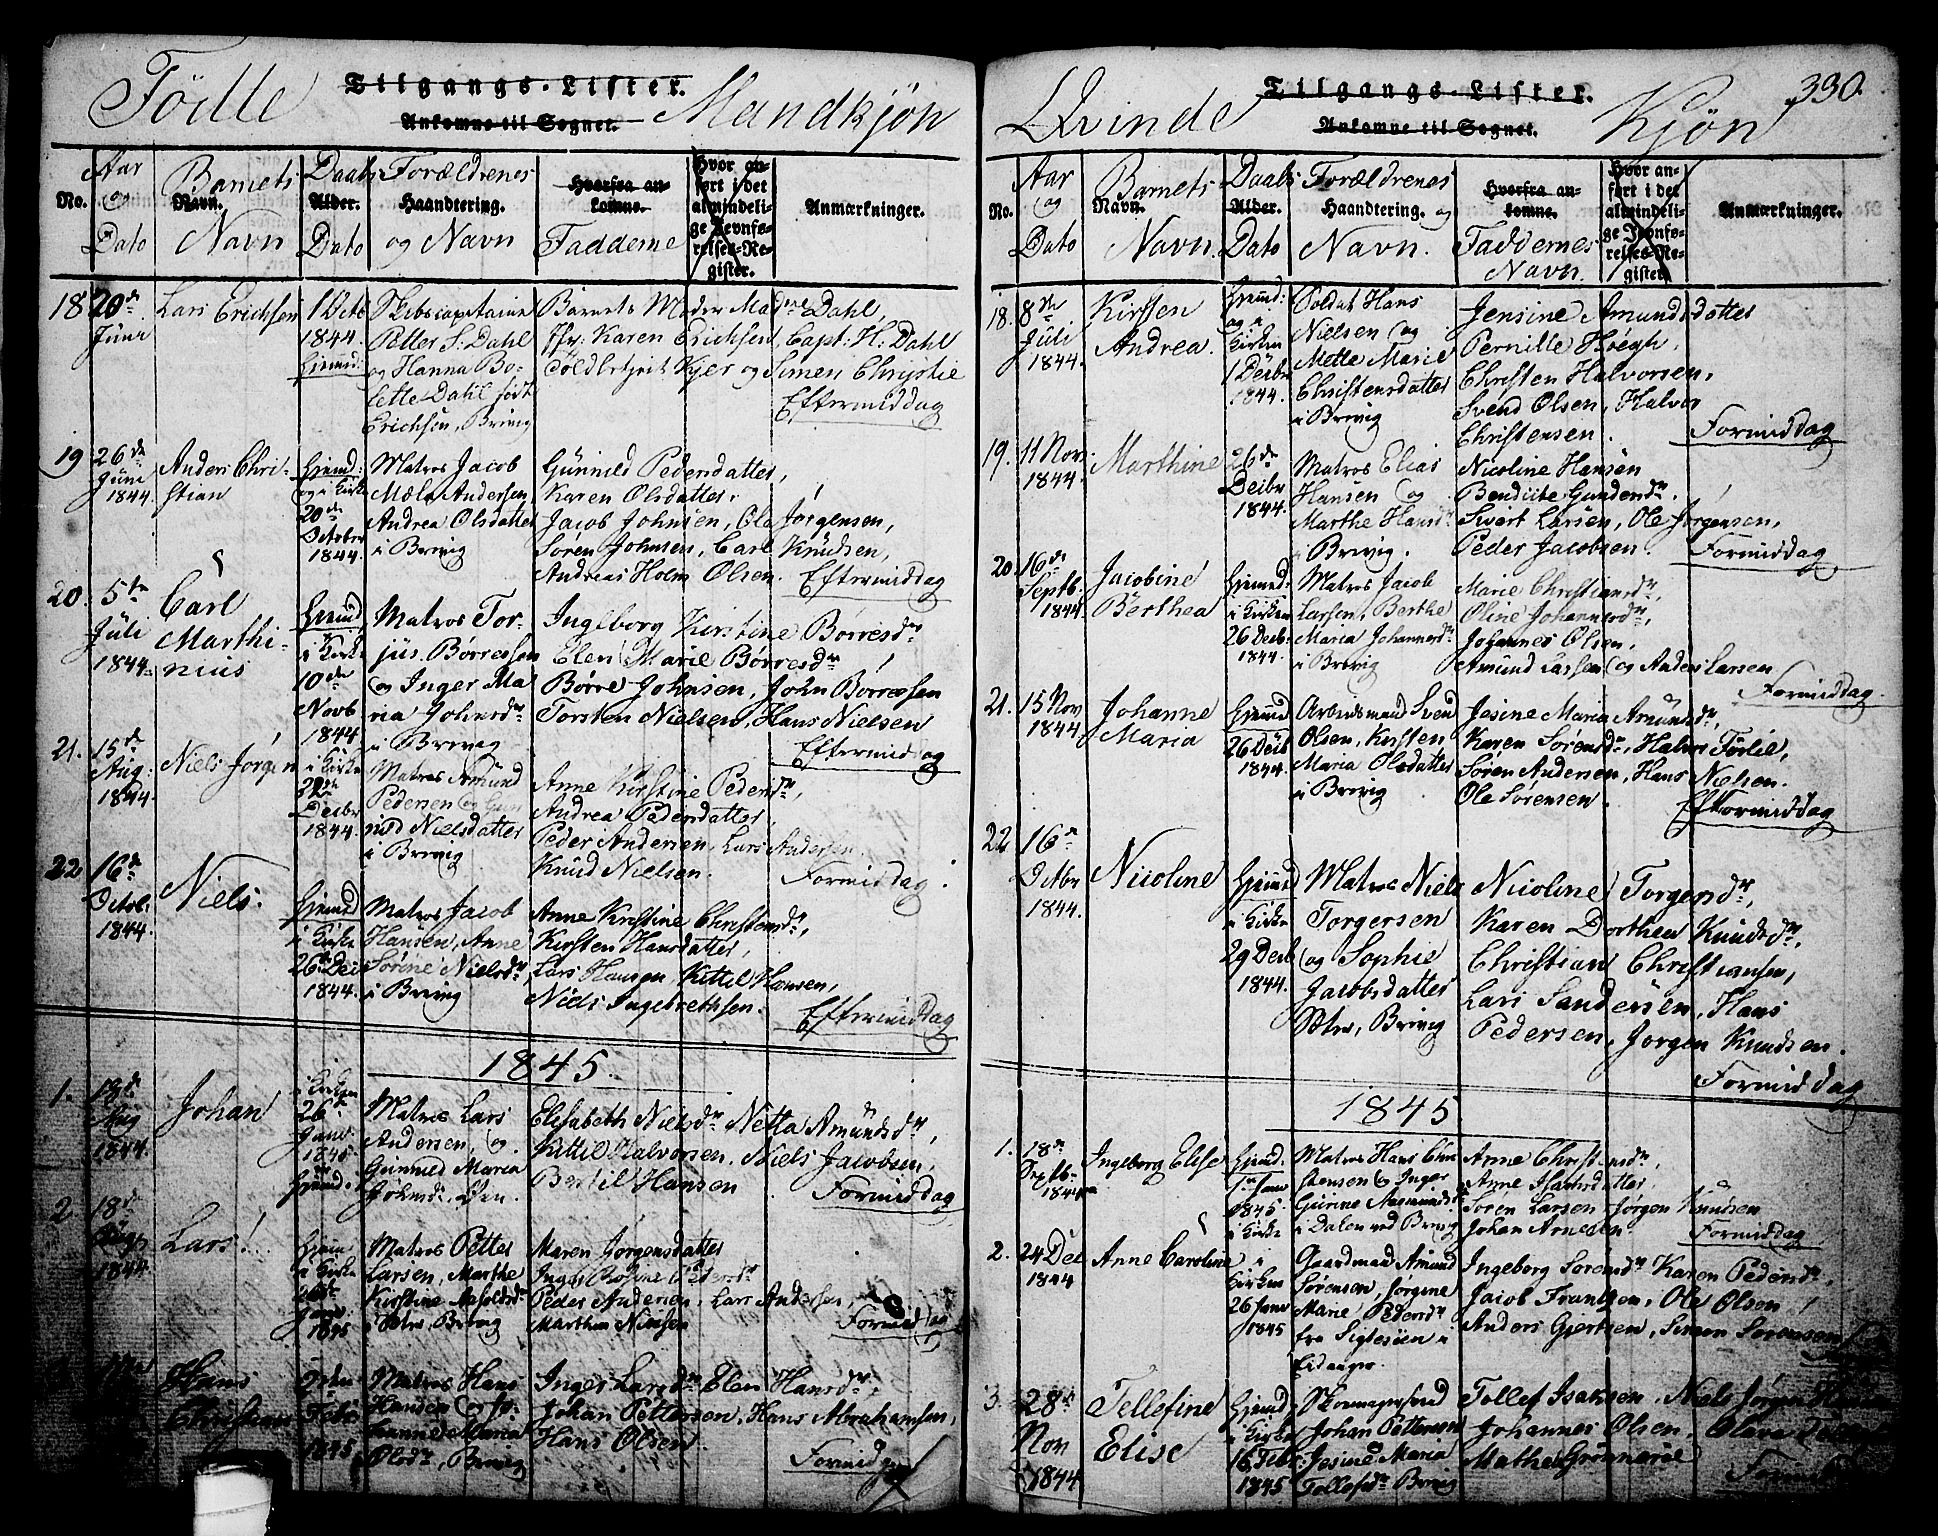 Tilgangs-Lister.
Födte Mandkjön
Ankomne til Sognet.
No.
Aar og Dato
Barnets Navn. Navn
Daabs Alder. Dato
Forældrenes Haandtering. og Navn
Hvorfra ankomne. Fadderne
Hvor anført i det almindelige Jevnførelses-Register.
Anmærkninger.
18. 20de Juni
Lars Erichsen
1 Octb 1844. Hjemd:
Skibscapitaine
Petter S: Dahl
og Hanna Bo-
lette Dahl født
Erichsen, Brevig
Barnets Moder Madme Dahl,
Jfr: Karen Erichsen, Capt: H: Dahl
Kjer og Simen Christie
Eftermiddag
19 26de Juni 1844.
Anders Chri-
stian
Hjemd: og i Kirke 20de October 1844.
Matros Jacob
Andersen,
Andrea Olsdatter
i Brevig
Gunnild Pedersdatter
Karen Olsdatter,
Jacob Johnsen, Ola Jörgensen,
Sören Johnsen, Carl Knudsen,
Andreas Holm Olsen.
Eftermiddag
20. 5te Juli 1844.
Carl
Marthi-
nius
Hjemd i Kirke 10de Novb 1844
Matros Tor-
jus. Børresen
og Inger Ma
ria Johnsdr
i Brevig
Ingeborg Kirstine Børresdr
Elen Marie Børresdr
Børre Johnsen, John Børresen
Torsten Nielsen, Hans Nielsen
Eftermiddag
21. 15de Aug: 1844.
Niels Jørgen
i Kirke Decbr 1844.
Matros Amund
Pedersen og Gun
nild Nielsdatter
i Brevig
Anne Kirstine Pedersdr,
Andrea Pedersdatter
Peder Andersen, Lars Andersen.
Knud Nielsen.
Formiddag.
22 16de Octob. 1844.
Niels.
Hjemd i Kirke 26de Decb 1844.
Matros Jacob
Hansen, Anne
Sörine Nielsdr
i Brevig
Anne Kirstine Christensdr,
Kirsten Hansdatter,
Lars Hansen, Kittil Hansen,
Niels Ingebrethsen.
Eftermiddag
1845.
1. 18de Aug 1844.
Johan
i Kirken 26de Janv. 1845 Hjemd.
Matros Lars
Andersen, og
Gunnild Maria
Elisabeth Nielsdr Netta Amundsdr,
Kittil Halvorsen, Niels Jacobsen,
Bertil Hansen
Formiddag
2 18de Aug 1844
Lars!
i Kirke 26de Janv. 1845
Matros Petter
Larsen, Marthe
Kirstine
Brevig
Maren Jørgensdatter
Inger Pedersdr
Peder Andersen, Lars Andersen,
Marthin
Formiddag
Hans
Christian
Febr 1845
Matros Hans
Hansen og Jo-
hanne Maria
Olsdr, Brevig
Inger Larsdr Elen Hansdr,
Johan Pettersen, Hans Abrahamsen,
Hans Olsen
Formiddag
Tilgangs-Lister.
Qvinde Kjön 390.
Ankomne til Sognet.
No.
Aar og Dato
Barnets Navn. Navn.
Daabs Alder. Dato
Forældrenes Haandtering. og Navn.
Hvorfra ankomne. Faddernes Navn.
Hvor anført i det almindelige Jevnførelses-Register
Anmærkninger.
18. 8de Juli 1844.
Kirsten
Andrea.
Hjemd: og i Kirken 1 Decbr 1844.
Soldat Hans
Nielsen og
Mette Marie
Christensdatter
i Brevig
Jensine Amundsdatter
Pernille Høegh,
Christen Halvorsen,
Svend Olsen, Halvor
Christensen.
Formiddag
19. 11 Nov. 1844.
Marthine
26de Decbr 1844.
Matros Elias
Hansen og
Marthe Hansdr
i Brevig.
Nicoline Hansen
Gundersdr.
Sivert Larsen, Ole Jørgensen,
Peder Jacobsen.
Formiddag
20. 16de Septb. 1844
Jacobine
Berthea
Hjemd: i Kirken 26 Decbr 1844.
Matros Jacob
Larsen, Berthe
Maria Johannesdr
i Brevig
Marie Christiansdr,
Oline Johannesdr,
Johannes Olsen,
Amund Larsen og Anders Larsen
Formiddag.
21. 15 Nov 1844.
Johanne
Maria
Hjemd 26 Decb 1844.
Arbeidsmand Svend
Olsen, Kirsten
Maria Olsdatter
i Brevig
Jesine Maria Amundsdr,
Karen Sørensdr, Halvor Førlie,
Søren Andersen, Hans Nielsen.
Ole Sørensen.
Eftermiddag
22 16de Octbr 1844.
Nicoline
Hjemd i Kirke 29 Decb 1844.
Matros Niels
Torgersen
og Sophie
Jacobsdatter
Brevig
Nicoline Torgersdr,
Karen Dorthea Knudsdr,
Christian Christiansen,
Lars Sandersen, Hans
Pedersen, Jørgen Knudsen.
Formiddag
1845
1. 18de Septb. 1844
Ingeborg Elise
Hjemd. 1845. i Kirke
Matros Hans Chri
stensen og Inger
Gurine
i Dalen ved Brevig
Anne Christensdr,
Anne Hansdatter,
Søren Larsen Jørgen Knudsen
Johan Arnesen.
Formiddag
2. 24 Dec 1844
Anne Caroline
i Kirken 26 Janv 1845
Gaardmand Amund
Sørensen, Jørgene
Marie Pedersdr
fra i
Eidanger.
Ingeborg Sørensdr Karen Pedersdr,
Jacob Frantzen, Ole Olsen
Anders Gjertsen, Simon Sørensen
3. 28de Nov 1844
Tellefine
Elise
Hjemd i Kirke 16 Febr. 1845
Johan Pettersen
Jesine Maria
Tellefsdr Brevig
Tollef Isaksen. Niels Jørgen
Johannes Olsen, Olava
Mathe